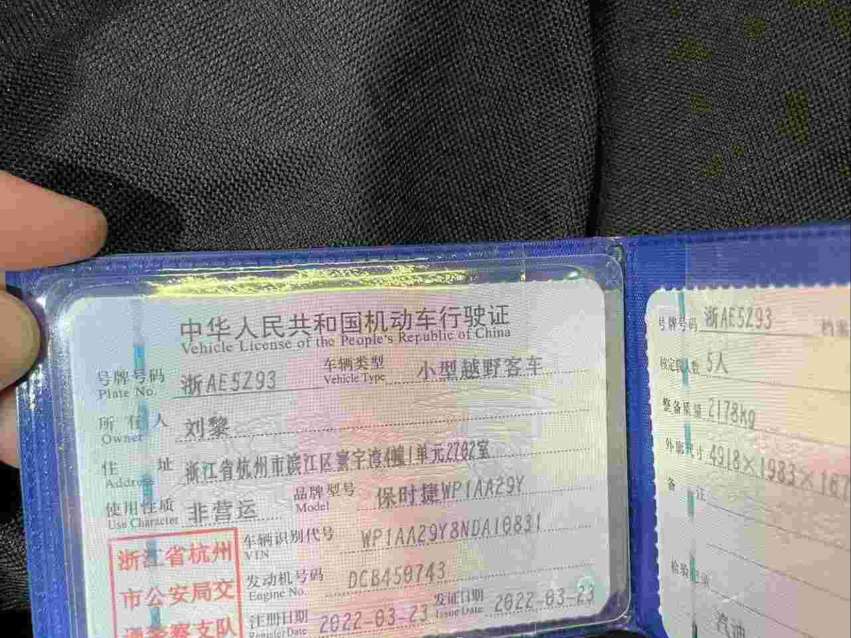 中华人民共和国机动车行驶证
Vehicle License of the People's Republic of China
号牌号码 浙AE5Z93 车辆类型 小型越野客车
Plate No. Vehicle Type
所有人 刘黎
Owner
住址 浙江省杭州市滨江区寰宇湾4幢1单元2702室
Address
使用性质 非营运 品牌型号 保时捷WP1AA29Y
Use Character Model
浙江省杭州
市公安局交
通警察支队
车辆识别代号 WP1AA29Y8NDA10831
VIN
发动机号码 DCB450743
Engine No.
注册日期 2022-03-23 发证日期 2022-03-23
Register Date Issue Date
号牌号码 浙AE5Z93 档案
核定载人数 5人
整备质量 2178kg
外廓尺寸 4918×1983×167
备注
检验记录
汽油